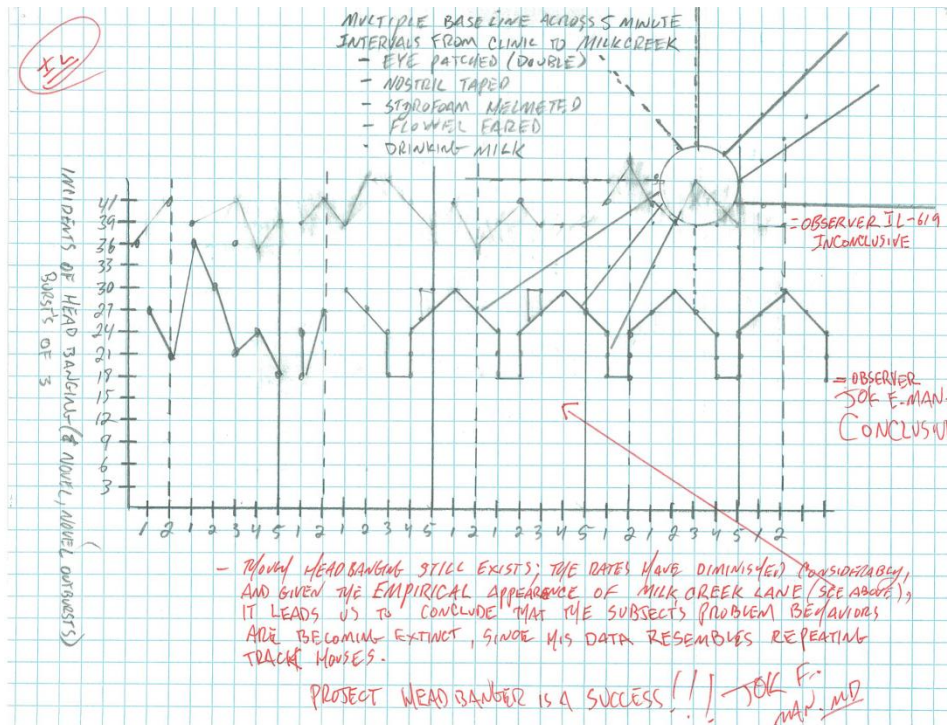 MULTIPLE BASELINE ACROSS 5 MINUTE
INTERVALS FROM CLINIC TO MILKCREEK
- EYE PATCHED (DOUBLE)
- NOSTRIL TAPED
- STYROFOAM HELMETED
- FLOWER EARED
- DRINKING MILK
INCIDENTS OF HEAD BANGING (& NOVEL, NOVEL OUTBURSTS)
BURST'S OF 3
41
39
36
33
30
27
24
21
18
15
12
9
6
3
= OBSERVER IL-619
INCONCLUSIVE
- OBSERVER
JOK E. MAN.
CONCLUSIV
1 2 1 2 3 4 5 1 2 1 2 3 4 5 1 2 1 2 3 4 5 1 2 1 2 3 4 5 1 2
- THOUGH HEADBANGING STILL EXISTS; THE RATES HAVE DIMINISHED CONSIDERABLY,
AND GIVEN THE EMPIRICAL APPEARENCE OF MILK CREEK LANE (SEE ABOVE),
IT LEADS US TO CONCLUDE THAT THE SUBJECTS PROBLEM BEHAVIORS
ARE BECOMING EXTINCT, SINCE HIS DATA RESEMBLES REPEATING
TRACK HOUSES.
PROJECT HEADBANGER IS A SUCCESS!!! JOK F.
MAN. MD